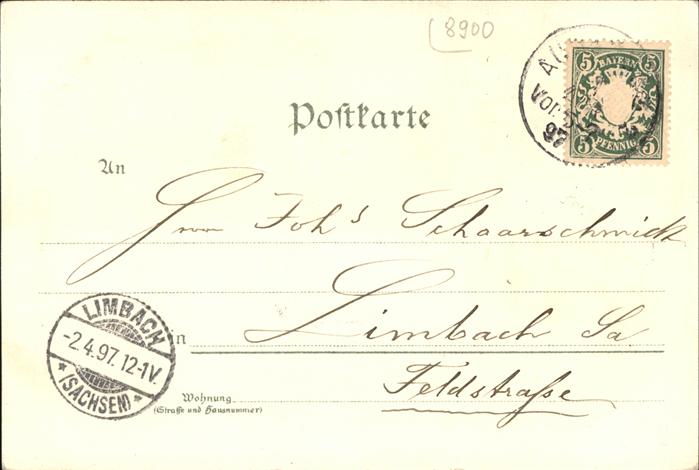 8900
5 5
BAYERN
5 PFENNIG 5
Vor.
97
Postkarte
An
Herrn Joh's Schaarschmidt
in Limbach Sa
Feldstraße
Wohnung
(Straße und Hausnummer)
LIMBACH
-2.4.97.12-1V.
* (SACHSEN) *